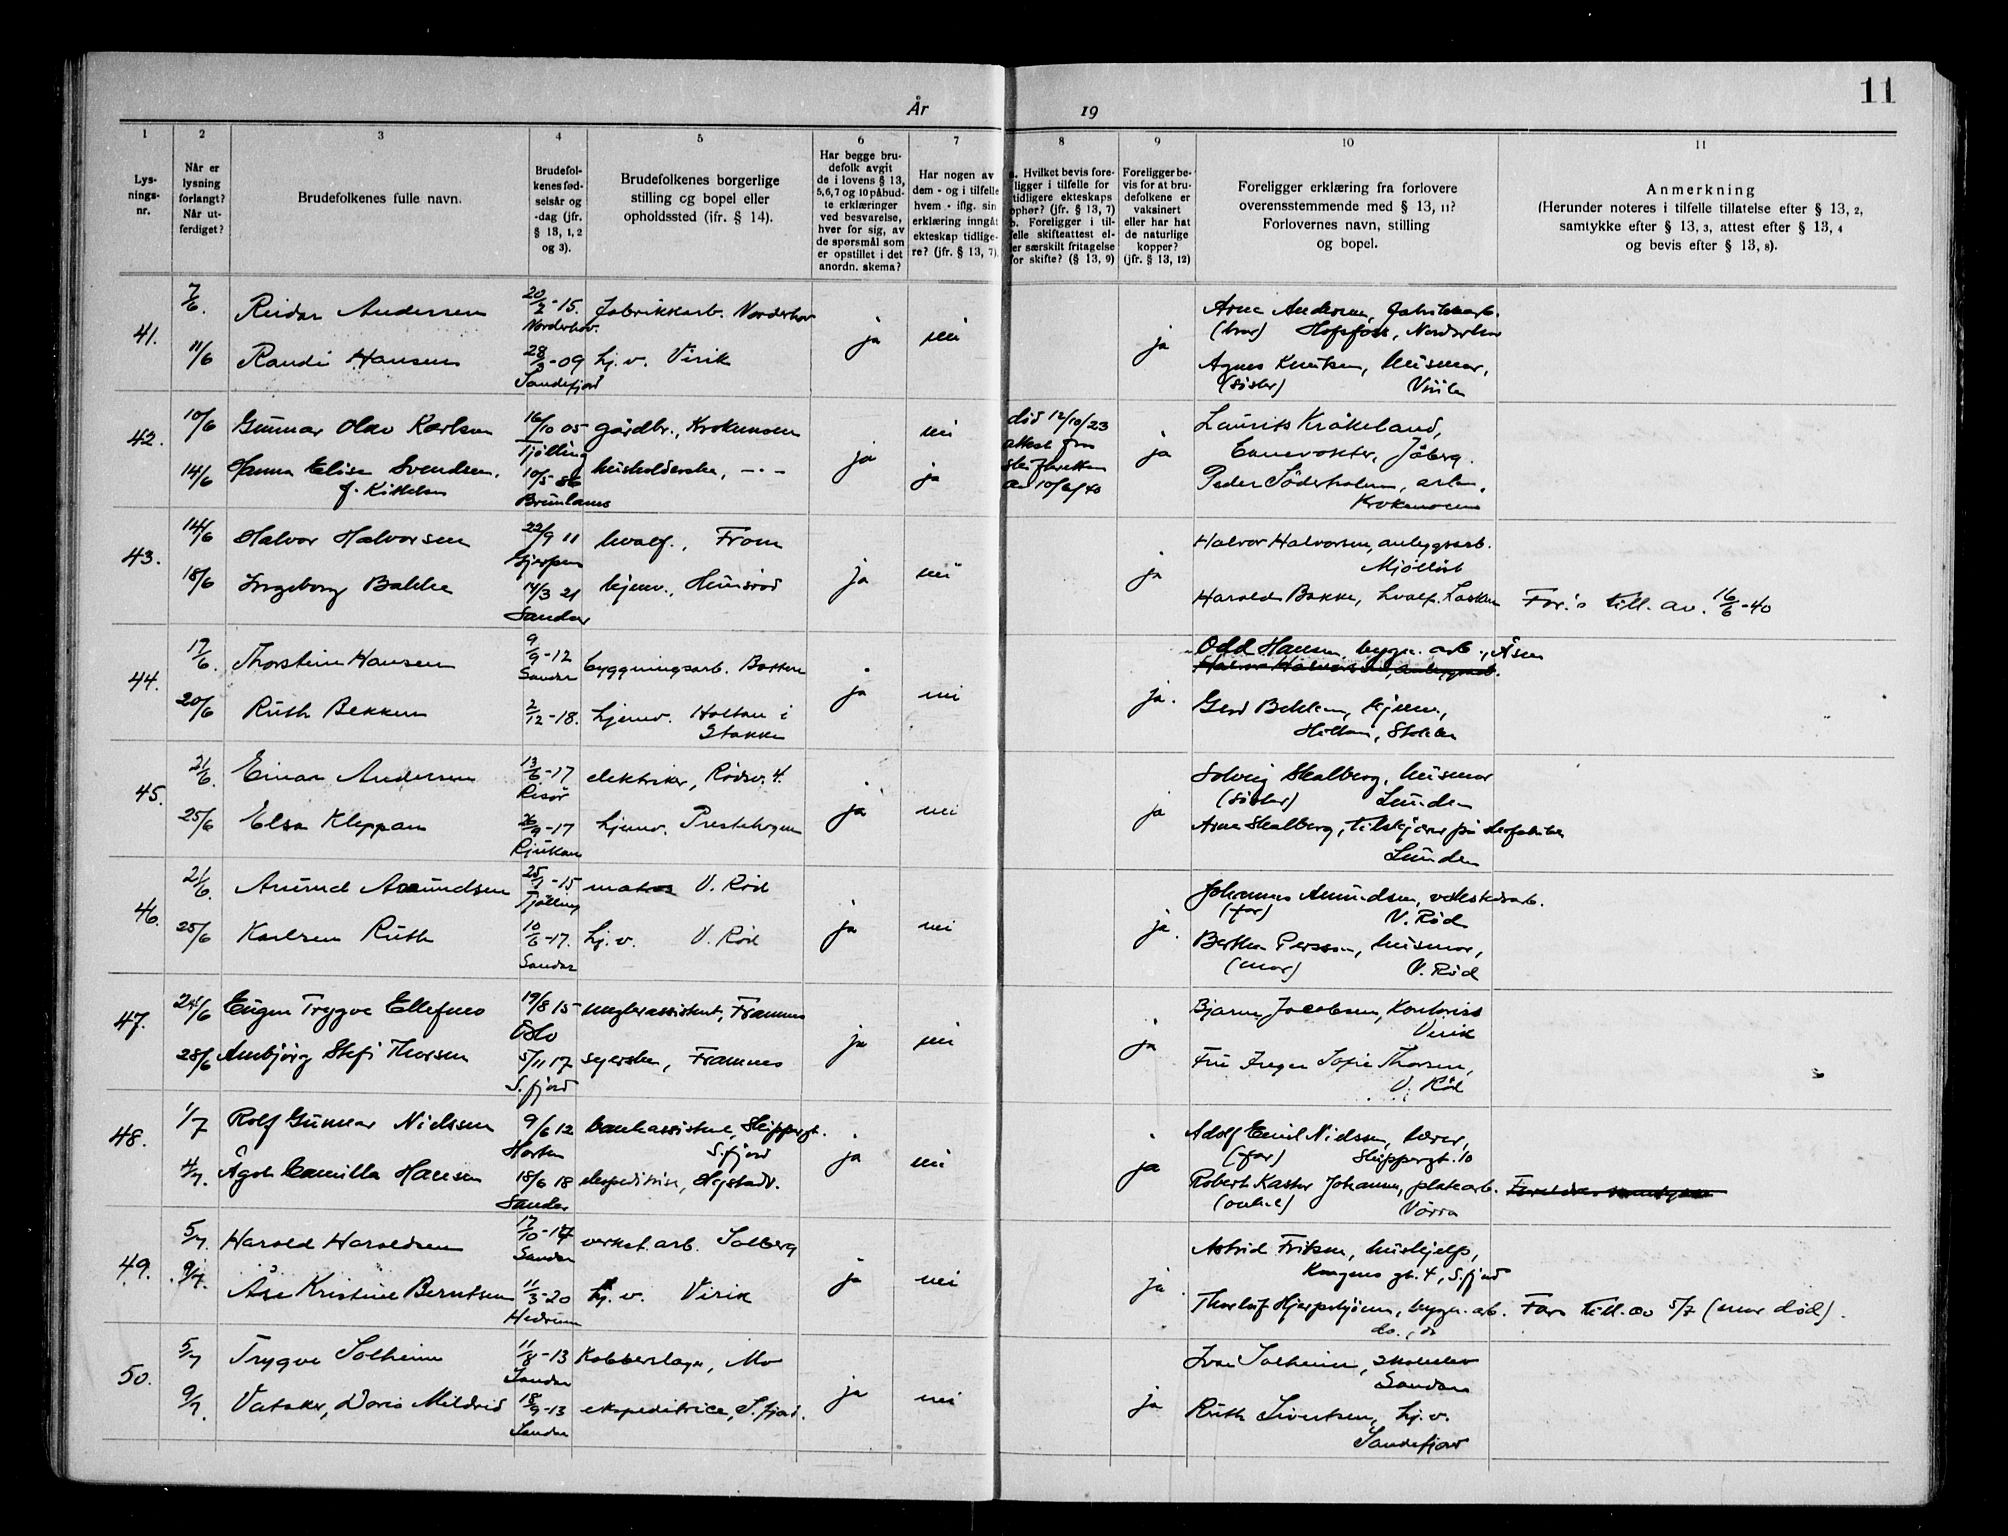 11
År
19
1
2
3
4
5
6
7
8
9
10
11
Lys-
nings-
nr.
Når er
lysning
forlangt?
Når ut-
ferdiget?
Brudefolkenes fulle navn.
Brudefol-
kenes fød-
selsår og
-dag (jfr.
§ 13, 1, 2
og 3).
Brudefolkenes borgerlige
stilling og bopel eller
opholdssted (jfr. § 14).
Har begge bru-
defolk avgit
de i lovens § 13,
5, 6, 7 og 10 påbud-
te erklæringer
ved besvarelse,
hver for sig, av
de spørsmål som
er opstillet i det
anordn. skema?
Har nogen av
dem - og i tilfelle
hvem - iflg. sin
erklæring inngått
ekteskap tidlige-
re? (jfr. § 13, 7).
a. Hvilket bevis fore-
ligger i tilfelle for
tidligere ekteskaps
ophør? (jfr. § 13, 7)
b. Foreligger i til-
felle skifteattest el-
ler særskilt fritagelse
for skifte? (§ 13, 9)
Foreligger be-
vis for at bru-
defolkene er
vaksinert
eller har hat
de naturlige
kopper?
(jfr. § 13, 12)
Foreligger erklæring fra forlovere
overensstemmende med § 13, 11?
Forlovernes navn, stilling
og bopel.
Anmerkning
(Herunder noteres i tilfelle tillatelse efter § 13, 2,
samtykke efter § 13, 3, attest efter § 13, 4
og bevis efter § 13, 8).
41.
7/6.
Reidar Andersen
20/2-15.
Norderhov.
fabrikkarb. Norderhov
11/6
Randi Hansen
28/3-09
Sandefjord
hj.v. Virik
ja
nei
ja
Arne Andersen, fabrikkarb.
(bror) Hofsfoss, Norderhov
Agnes Knutsen, husmor,
(søster) Virik
42.
10/6
Gunnar Olav Karlsen
16/10 05
Tjølling
gårdbr., Krokemoen
14/6
Hanna Elise Svendsen.
f. Kittelsen
10/5-86
Brunlanes
husholderske, -"-
ja
nei
ja
død 12/10/23
attest fra
skifteretten
av 10/6/40
ja
Laurits Kråkeland,
Jåberg.
Peder Söderholm, arb.,
Krokemoen
43.
14/6
Halvor Halvorsen
22/9 11
Gjerpen
hvalf., Fram
18/6
Ingeborg Bakke
14/3 21
Sandar
hjemv., Hunsrød
ja
nei
ja
Halvor Halvorsen, anlegsarb.
Harald Bakke, hvalf.
Far's till. av. 16/6-40
44.
17/6.
Thorstein Hansen
9/9-12
Sandar
byggningsarb.
20/6
Ruth Bekken
2/12-18.
hjemv. Holtan i
Stokke
ja
nei
ja.
Odd Hansen, bygn. arb., Åsen
Halvor Halvorsen, anlegsarb.
Gerd Bekken, hjemv.,
Holtan, Stokke
45.
21/6.
Einar Andersen
13/6-17
Risør
elektriker, Rødsv. 4.
25/6
Elsa Kleppan
26/9-17
Rjukan
hjemv. Prestehagen
ja
nei
ja
Solveig Skalberg, husmor
(søster) Lunden
Arne Skalberg, tilskjærer på skofabrikk
Lunden
46.
21/6.
Amund Amundsen
25/1-15
Tjølling
matros V. Rød
25/6
Karlsen Ruth
10/6-17.
Sandar
hj.v. V. Rød
ja
nei
ja.
Johannes Amundsen, verkstedsarb.
(far) V. Rød
Bertha Persson, husmor,
(mor) V. Rød
47.
24/6
Eugen Trygve Ellefsen
19/8 15
Oslo
meglerassistent, Framnes
28/6
Annbjørg Stefi Thorsen
5/11 17
S.fjord
syerske, Framnes
ja
nei
ja
Bjarne Jacobsen, Kontorist
Virik
Fru Inger Sofie Thorsen,
V. Rød
48.
1/7
Rolf Gunnar Nielssen
9/6 12
Horten
bankassistent, Skippergt.
S.fjord
4/7.
Ågot Camilla Hansen
18/6 18
Sandar
ekspeditrise,
ja
nei
ja
Adolf Emil Nielssen, lærer,
(far) Skippergt. 10
Robert Kaster Johansen, platearb.
(onkel)
49.
5/7.
Harald Haraldsen
17/10-17
Sandar
verkst. arb. Solberg
9/7.
Åse Kristine Berntsen
11/3-20
Hedrum
hj.v. Virik
ja
nei
ja.
Astrid Eriksen, hushjelp,
Kongens gt. 4, S.fjord
Thorleif Hjerpekjønn, bygn. arb.
do., do
Fars till. av 5/7 (mor død).
50.
5/7
Trygve Solheim
11/8-13
Sandar
Kobberslager, Mo
9/7.
Vataker, Doris Mildrid
18/9-13
Sandar
ekspeditrice, S.fjord.
ja
nei
ja
Ivar Solheim,
Sandar
Ruth Sivertsen, hj.v.
Sandefjord